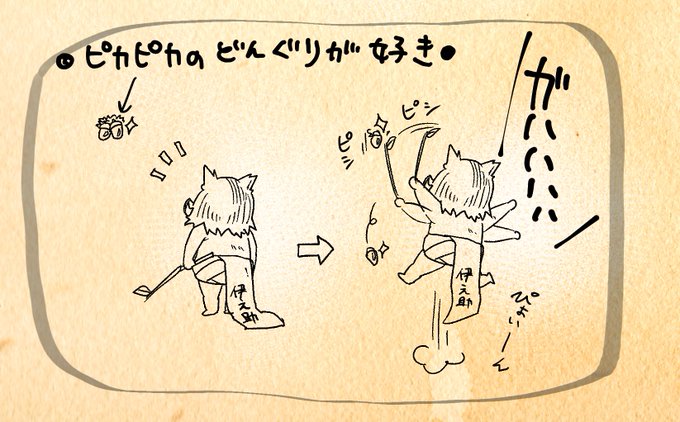 ●ピカピカのどんぐりが好き●
ガハハハハ
ピシ
ピシ
伊之助
伊之助
ぴょいーん